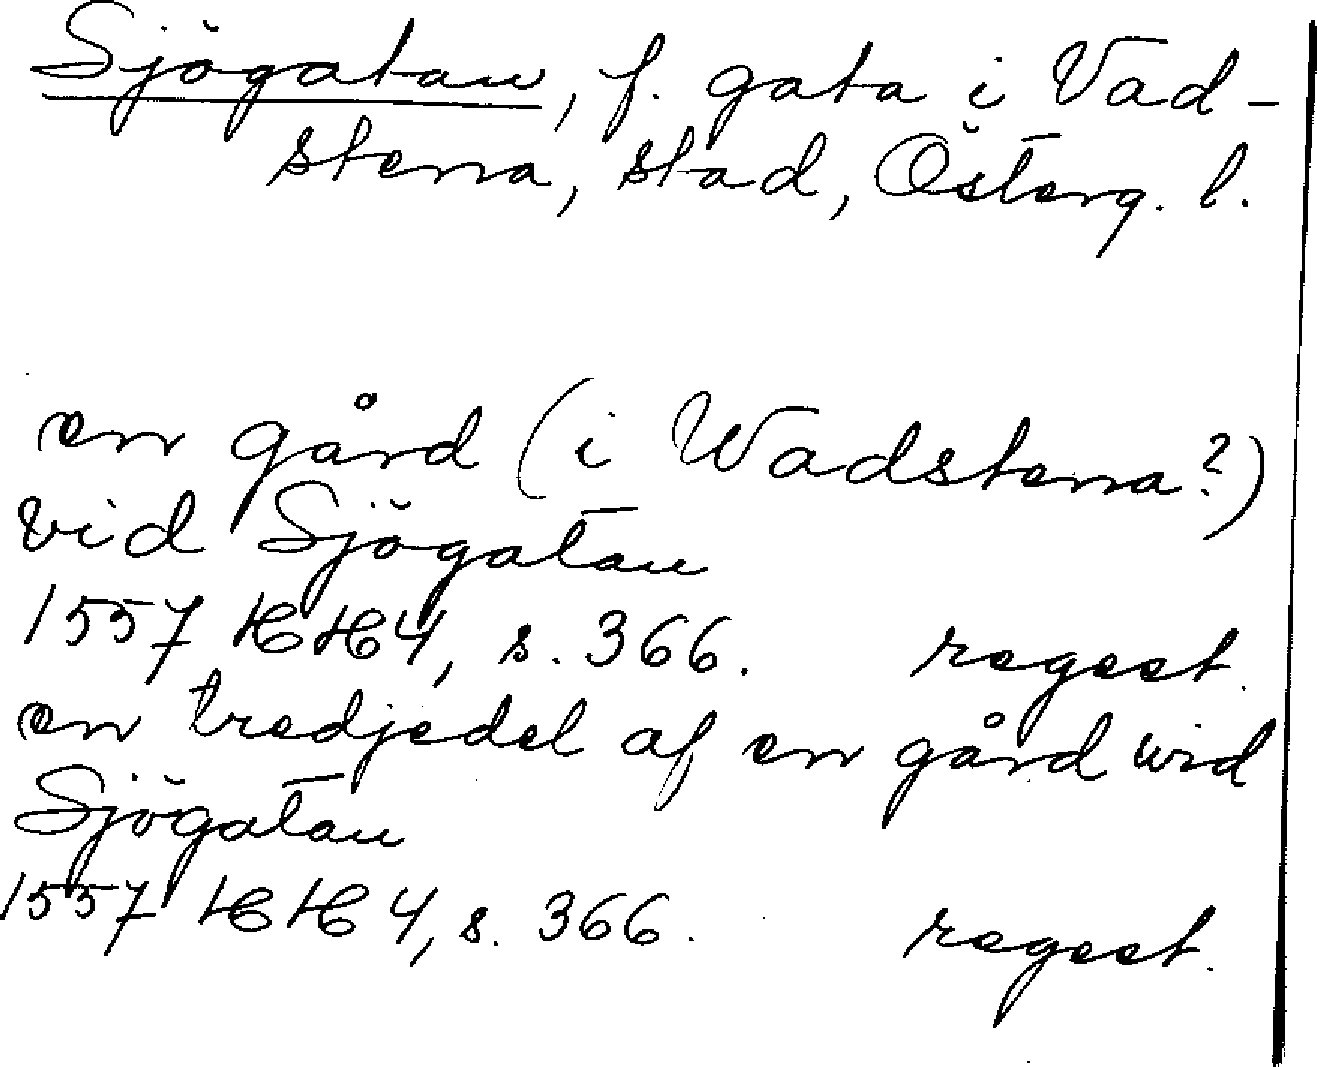 Sjögatan, f. gata i Vad-
stena, stad, Österg. l.
en gård (i Wadstena?)
vid Sjögatan
1557 HH 4, s. 366. regest.
en tredjedel af en gård wid
Sjögatan
1557 HH 4, s. 366. regest.